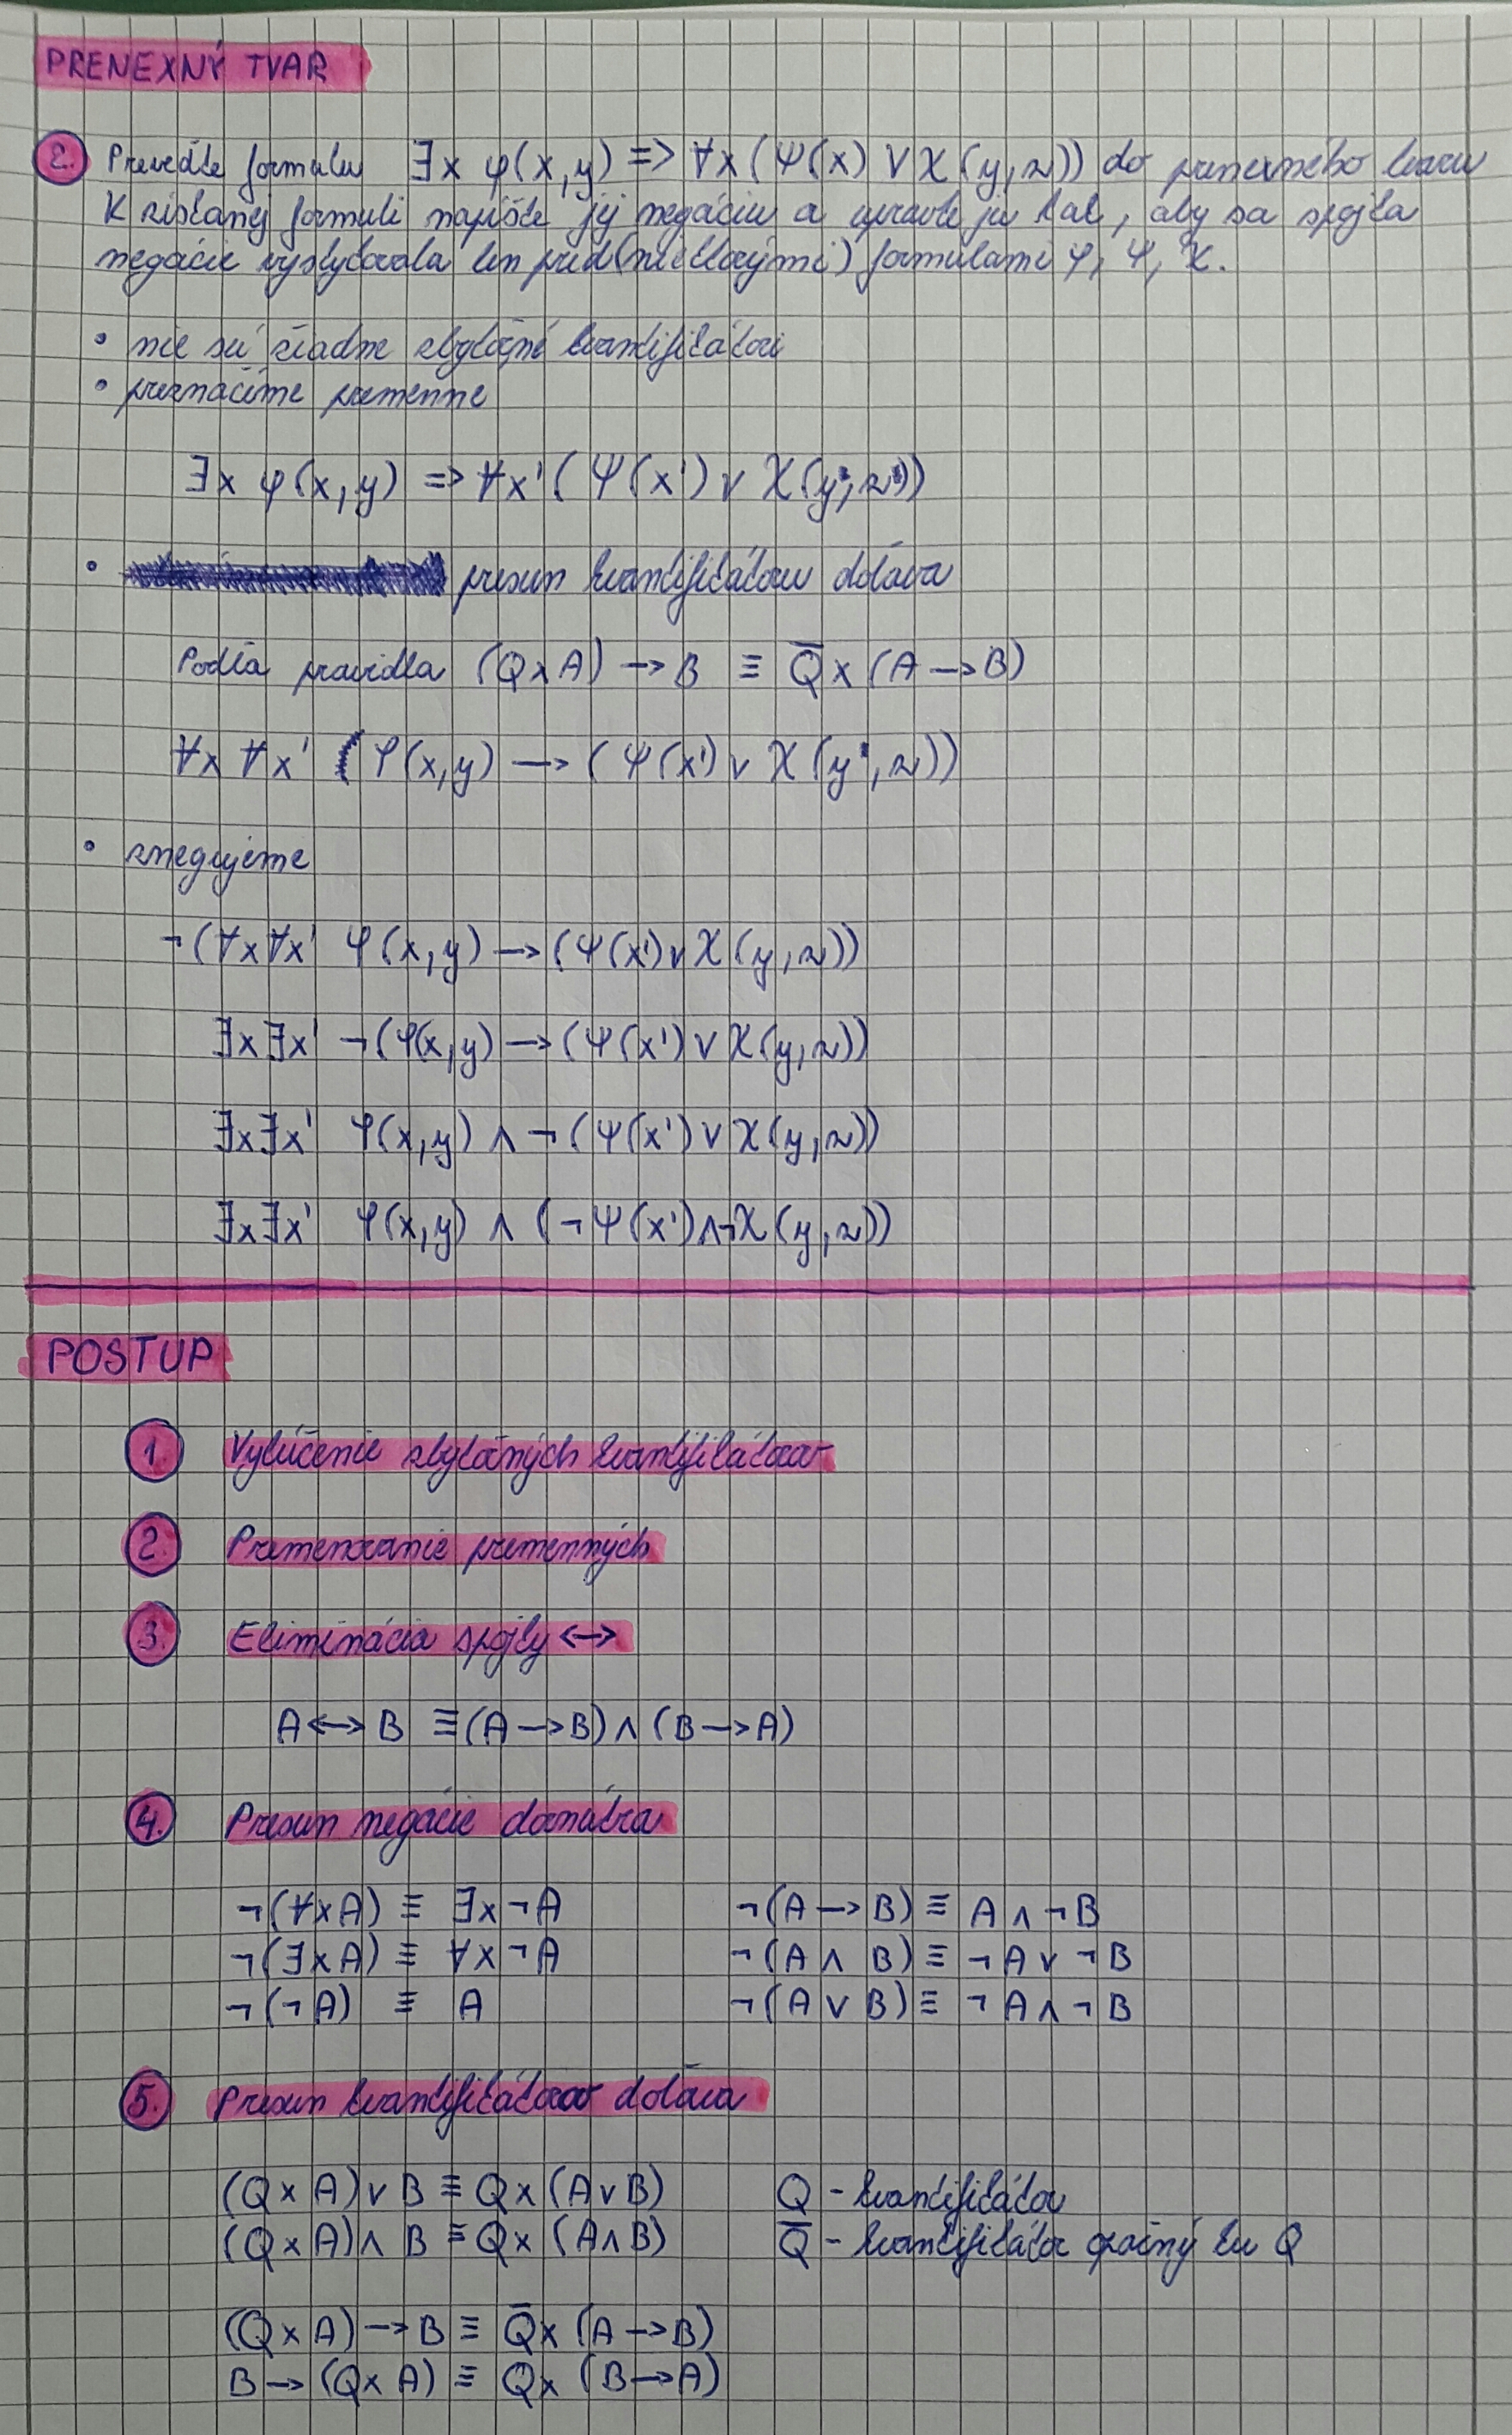 PRENEXNÝ TVAR
2. Preveďte formulu ∃x φ(x,y) => ∀x(Ψ(x) ∨ χ(y,z)) do prenexného tvaru
K získanej formuli napíšte jej negáciu a upravte ju tak, aby sa spojka
negácie vyskytovala len pred (niektorými) formulami φ, Ψ, χ.
• nie sú žiadne zbytočné kvantifikátori
• preznačíme premenne
∃x φ(x,y) => ∀x'(Ψ(x') ∨ χ(y,z))
• presun kvantifikátorov doľava
Podľa pravidla (QxA) → B ≡ Q̅x(A → B)
∀x ∀x' (φ(x,y) → (Ψ(x') ∨ χ(y,z))
• znegujeme
¬(∀x∀x' φ(x,y) → (Ψ(x') ∨ χ(y,z))
∃x∃x' ¬(φ(x,y) → (Ψ(x') ∨ χ(y,z))
∃x∃x' φ(x,y) ∧ ¬(Ψ(x') ∨ χ(y,z))
∃x∃x' φ(x,y) ∧ (¬Ψ(x') ∧ ¬χ(y,z))
POSTUP
1. Vylúčenie zbytočných kvantifikátorov
2. Premenovanie premenných
3. Eliminácia spojky ↔
A ↔ B ≡ (A → B) ∧ (B → A)
4. Presun negácie dovnútra
¬(∀xA) ≡ ∃x¬A ¬(A → B) ≡ A ∧ ¬B
¬(∃xA) ≡ ∀x¬A ¬(A ∧ B) ≡ ¬A ∨ ¬B
¬(¬A) ≡ A ¬(A ∨ B) ≡ ¬A ∧ ¬B
5. Presun kvantifikátorov doľava
(QxA) ∨ B ≡ Qx(A ∨ B) Q - kvantifikátor
(QxA) ∧ B ≡ Qx(A ∧ B) Q̅ - kvantifikátor opačný ku Q
(QxA) → B ≡ Q̅x(A → B)
B → (QxA) ≡ Qx(B → A)